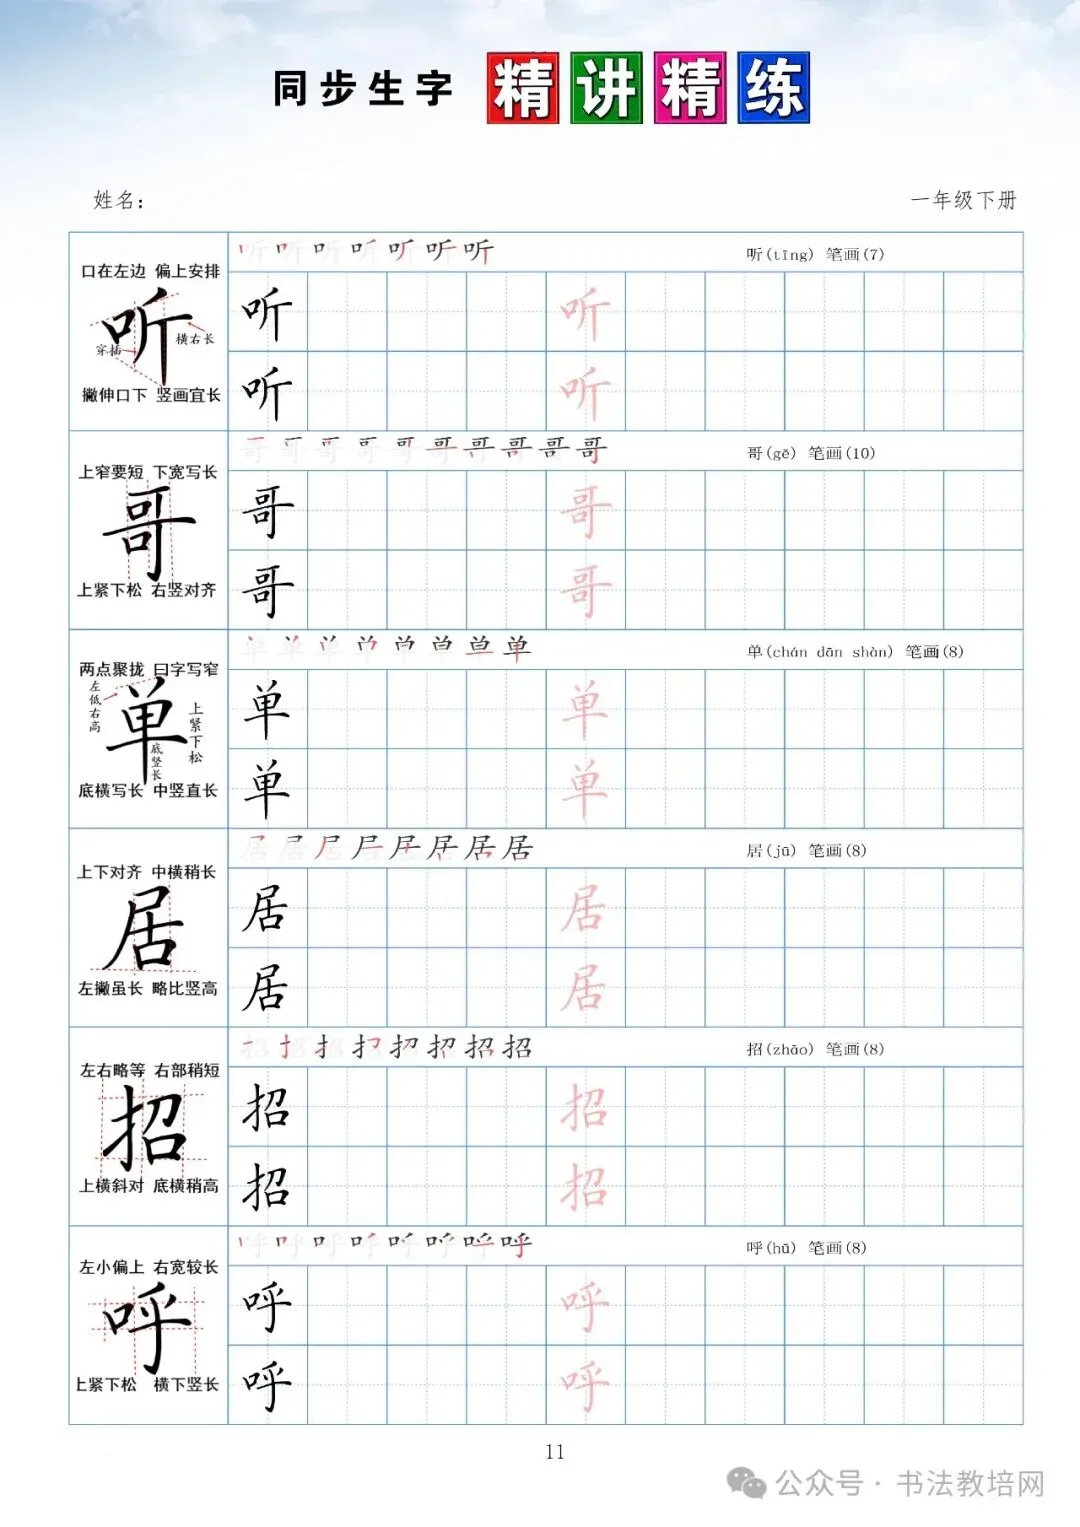 同步生字 精讲精练
姓名： 一年级下册
口在左边 偏上安排
听
横右长
穿插
撇伸口下 竖画宜长
听 听 听 听 听 听 听
听(tīng) 笔画(7)
听 听
听 听
上窄要短 下宽写长
哥
上紧下松 右竖对齐
哥 哥 哥 哥 哥 哥 哥 哥 哥 哥
哥(gē) 笔画(10)
哥 哥
哥 哥
两点聚拢 曰字写窄
左低右高
单
上紧下松
底竖长
底横写长 中竖直长
单 单 单 单 单 单 单 单
单(chán dān shàn) 笔画(8)
单 单
单 单
上下对齐 中横稍长
居
左撇虽长 略比竖高
居 居 居 居 居 居 居 居
居(jū) 笔画(8)
居 居
居 居
左右略等 右部稍短
招
上横斜对 底横稍高
招 招 招 招 招 招 招 招
招(zhāo) 笔画(8)
招 招
招 招
左小偏上 右宽较长
呼
上紧下松 横下竖长
呼 呼 呼 呼 呼 呼 呼 呼
呼(hū) 笔画(8)
呼 呼
呼 呼
11
公众号 · 书法教培网